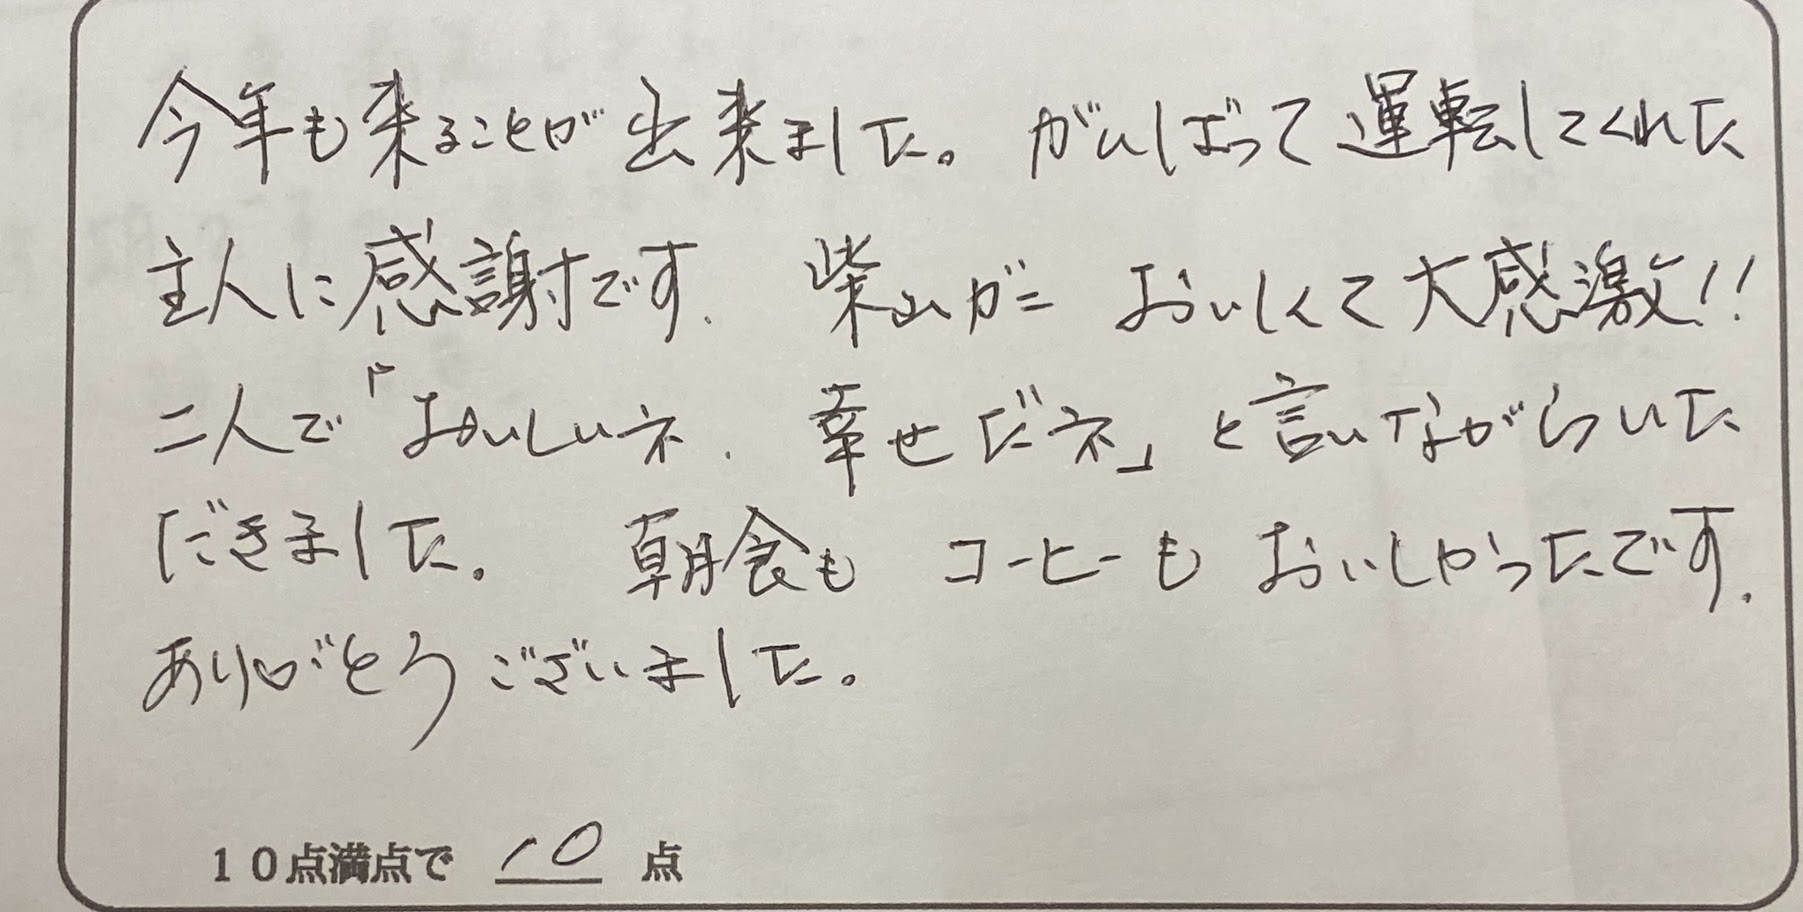 今年も来ることが出来ました。がんばって運転してくれた
主人に感謝です. 柴山ガニ おいしくて大感激!!
二人で「おいしいネ. 幸せだネ」と言いながらいた
だきました。 朝食も コーヒーも おいしかったです.
ありがとうございました。
10点満点で 10 点